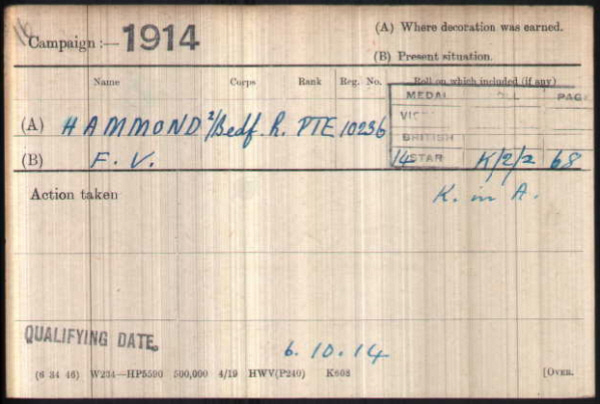 Campaign :— 1914
(A) Where decoration was earned.
(B) Present situation.
Name Corps Rank Reg. No. Roll on which included (if any)
MEDAL PAGE
VIC
BRITISH
(A) HAMMOND 2/Bedf. R. PTE 10236
(B) F. V. 14 STAR K/2/2 68
Action taken K. in A.
QUALIFYING DATE.
6.10.14
(6 34 46) W234—HP5590 500,000 4/19 HWV(P240) K608 [OVER.